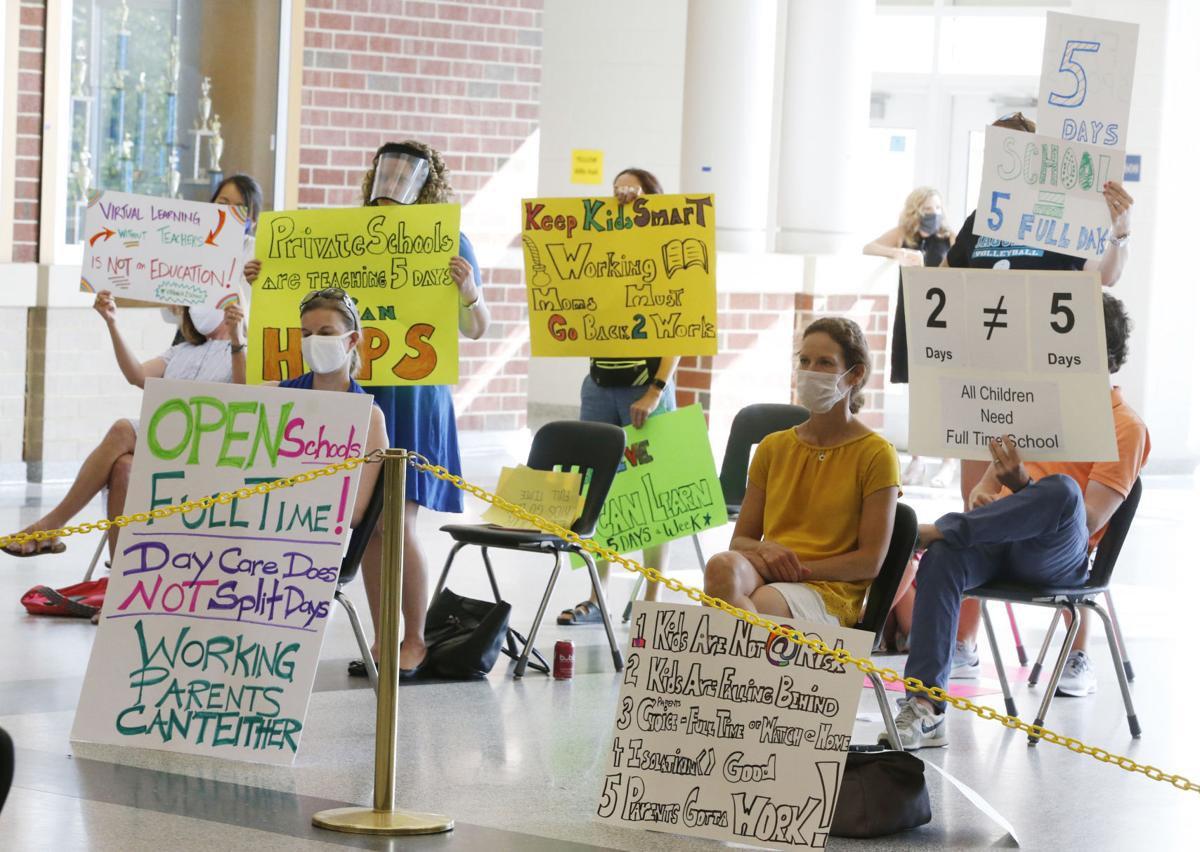 VIRTUAL LEARNING
WITHOUT TEACHERS
IS NOT an EDUCATION!
Private Schools
are TEACHING 5 DAYS
AN
H PS
Keep Kids SmarT
Working
Moms Must
Go Back 2 Work
5
DAYS
SCHOOL
=
5 FULL DAYS
VOLLEYBALL
2 ≠ 5
Days Days
All Children
Need
Full Time School
OPEN Schools
Full Time!
Day Care Does
NOT Split Days
WORKING
PARENTS
CAN'T EITHER
FULL TIME
CAN LEARN
5 DAYS a WeeK
1 Kids Are Not @ Risk
2 Kids Are Falling Behind
Parents
3 Choice - Full Time or Watch @ Home
4 Isolation <> Good
5 Parents Gotta WORK!